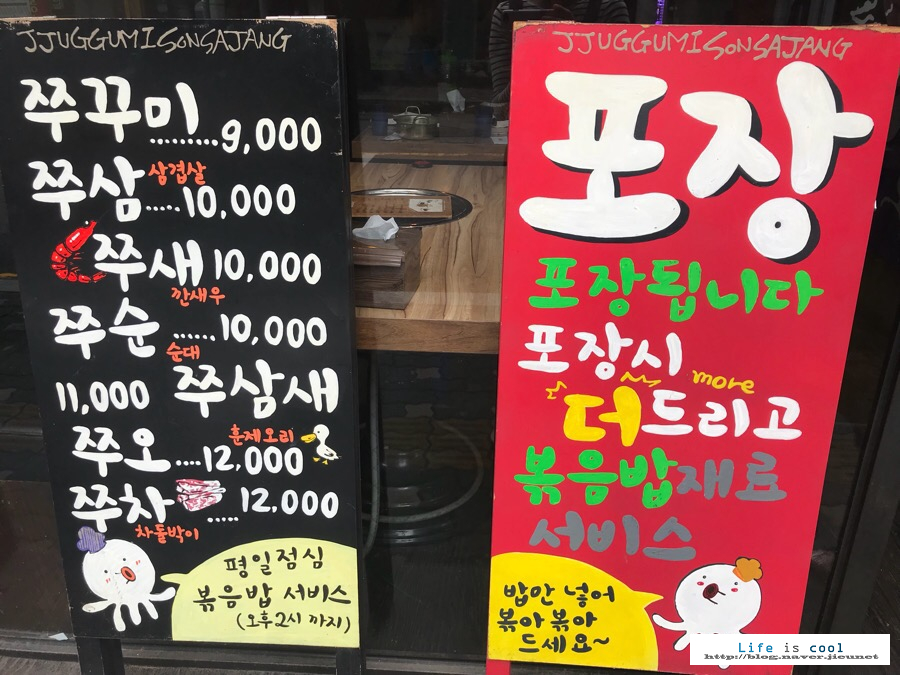 JJUGGUMISONSAJANG
쭈꾸미........9,000
쭈삼 삼겹살.....10,000
쭈새 10,000
깐새우
쭈순......10,000
순대
11,000 쭈삼새
쭈오 훈제오리....12,000
쭈차.....12,000
차돌박이
평일점심
볶음밥 서비스
(오후2시 까지)
JJUGGUMISONSAJANG
포장
포장됩니다
포장시
more
더드리고
볶음밥재료
서비스
밥만 넣어
볶아볶아
드세요~
Life is cool
http://blog.naver.jieunet